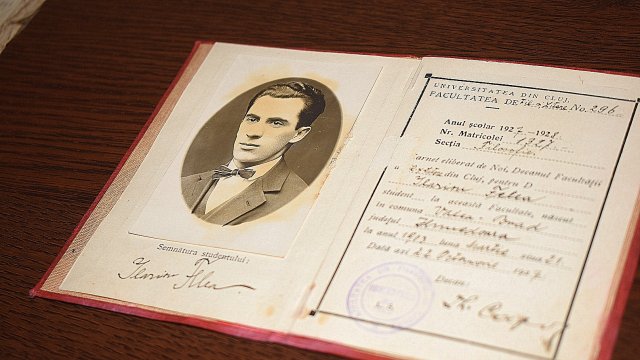 Semnătura studentului:
Ilarion Felea
UNIVERSITATEA DIN CLUJ
FACULTATEA DE No. 296
Anul școlar 1927-1928
Nr. Matricolei 1727
Secția Filosofie
Carnet eliberat de Noi, Decanul Facultății
din Cluj, pentru D
Ilarion Felea
student la această Facultate, născut
în comuna Valea-Bradului
județul Hunedoara
la anul luna Martie ziua 21.
Data azi 22 1927
Decan: